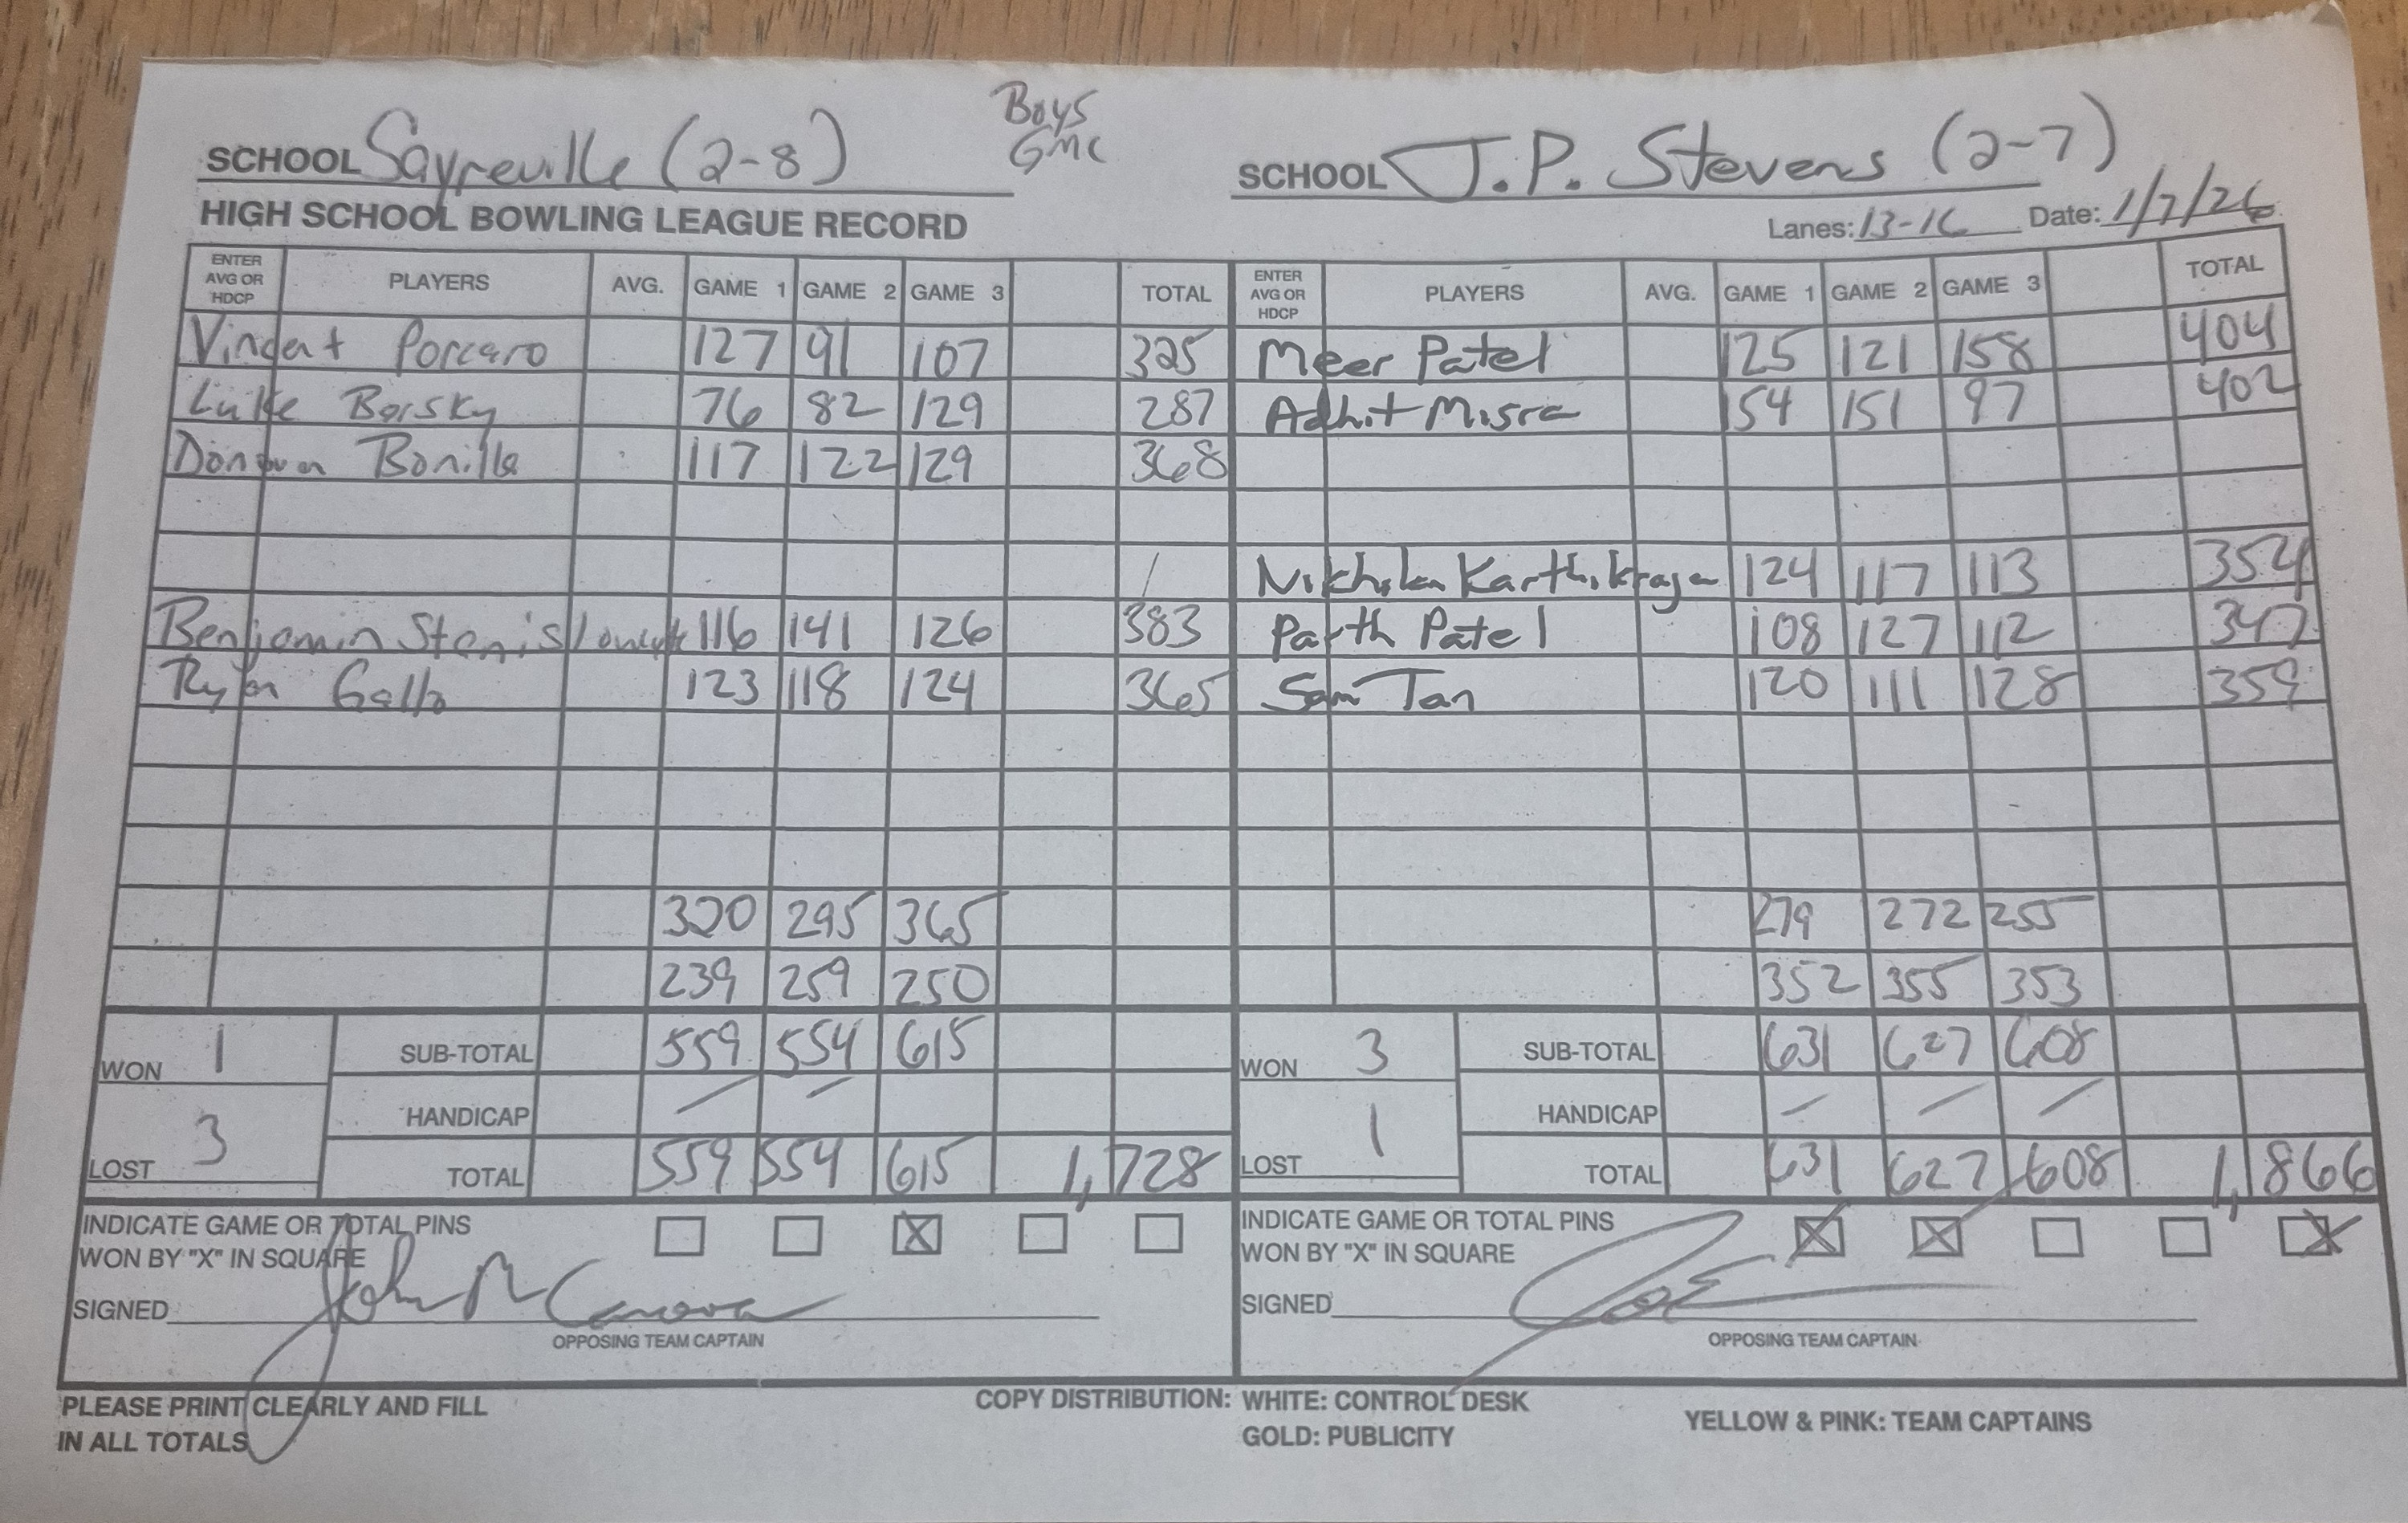 Boys
GMC
SCHOOL Sayreville (2-8) SCHOOL J.P. Stevens (2-7)
HIGH SCHOOL BOWLING LEAGUE RECORD Lanes: 13-16 Date: 1/7/26
ENTER AVG OR HDCP PLAYERS AVG. GAME 1 GAME 2 GAME 3 TOTAL ENTER AVG OR HDCP PLAYERS AVG. GAME 1 GAME 2 GAME 3 TOTAL
Vincent Porcaro 127 91 107 325 Meer Patel 125 121 158 404
Luke Borsky 76 82 129 287 Adhit Misra 154 151 97 402
Donovan Bonilla 117 122 129 368
/ 124 117 113 354
Benjamin 116 141 126 383 Parth Patel 108 127 112 347
Ryan Gallo 123 118 124 365 Sam Tan 120 111 128 359
320 295 365 279 272 255
239 259 250 352 355 353
WON 1 SUB-TOTAL 559 554 615 WON 3 SUB-TOTAL 631 627 608
HANDICAP / / HANDICAP / / /
LOST 3 TOTAL 559 554 615 1,728 LOST 1 TOTAL 631 627 608 1,866
INDICATE GAME OR TOTAL PINS X INDICATE GAME OR TOTAL PINS X X X
WON BY "X" IN SQUARE WON BY "X" IN SQUARE
SIGNED John SIGNED
OPPOSING TEAM CAPTAIN OPPOSING TEAM CAPTAIN
PLEASE PRINT CLEARLY AND FILL COPY DISTRIBUTION: WHITE: CONTROL DESK YELLOW & PINK: TEAM CAPTAINS
IN ALL TOTALS GOLD: PUBLICITY